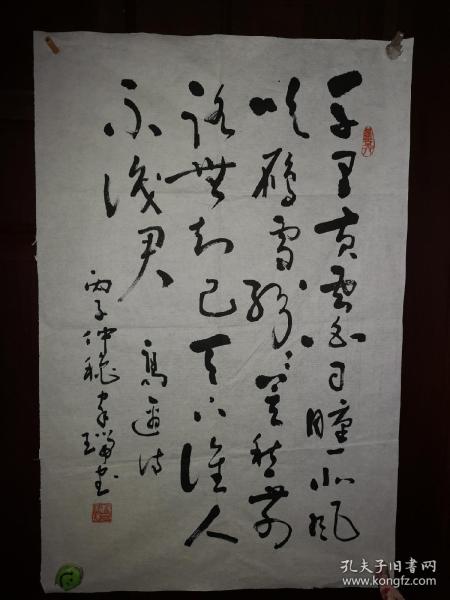 千里黄雲白日曛北風
吹雁雪紛紛莫愁前
路無知己天下誰人
不識君
高適诗
丙子仲秋 瑞书
孔夫子旧书网
www.kongfz.com